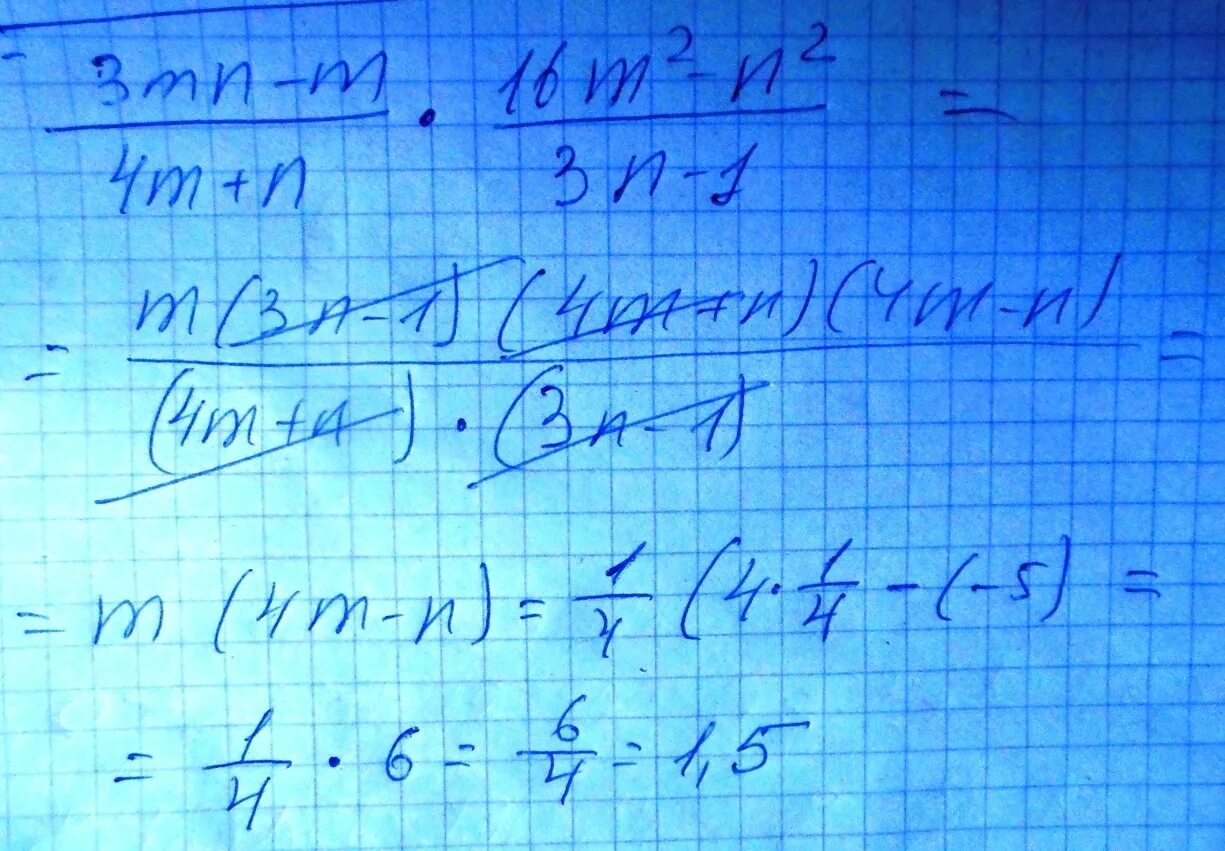 3mn-m/4m+n · 16m²-n²/3n-1 =
= m(3n-1)(4m+n)(4m-n)/(4m+n)·(3n-1) =
= m(4m-n) = 1/4 (4·1/4-(-5) =
= 1/4 · 6 = 6/4 = 1,5